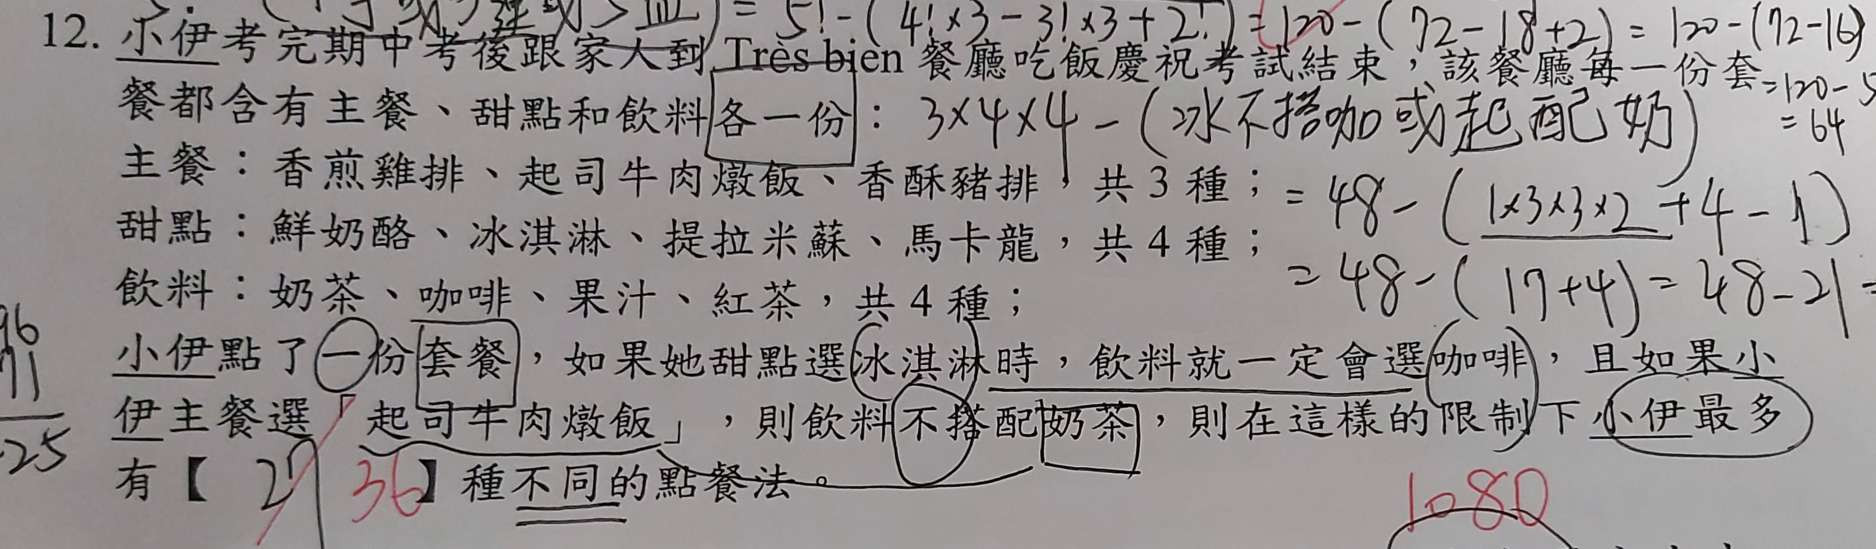 = 5! - (4!×3 - 3!×3 + 2!) = 120 - (72 - 18 + 2) = 120 - (72 - 16)
12. 小伊考完期中考後跟家人到 Très bien 餐廳吃飯慶祝考試結束，該餐廳每一份套
= 120 - 5
餐都含有主餐、甜點和飲料各一份： 3×4×4 - (冰不搭咖或起配奶)
= 64
主餐：香煎雞排、起司牛肉燉飯、香酥豬排，共 3 種；
= 48 - (1×3×3×2 + 4 - 1)
甜點：鮮奶酪、冰淇淋、提拉米蘇、馬卡龍，共 4 種；
= 48 - (17+4) = 48 - 21 =
飲料：奶茶、咖啡、果汁、紅茶，共 4 種；
小伊點了一份套餐，如果她甜點選冰淇淋時，飲料就一定會選咖啡，且如果小
伊主餐選「起司牛肉燉飯」，則飲料不搭配奶茶，則在這樣的限制下小伊最多
有【 27 36 】種不同的點餐法。
1080